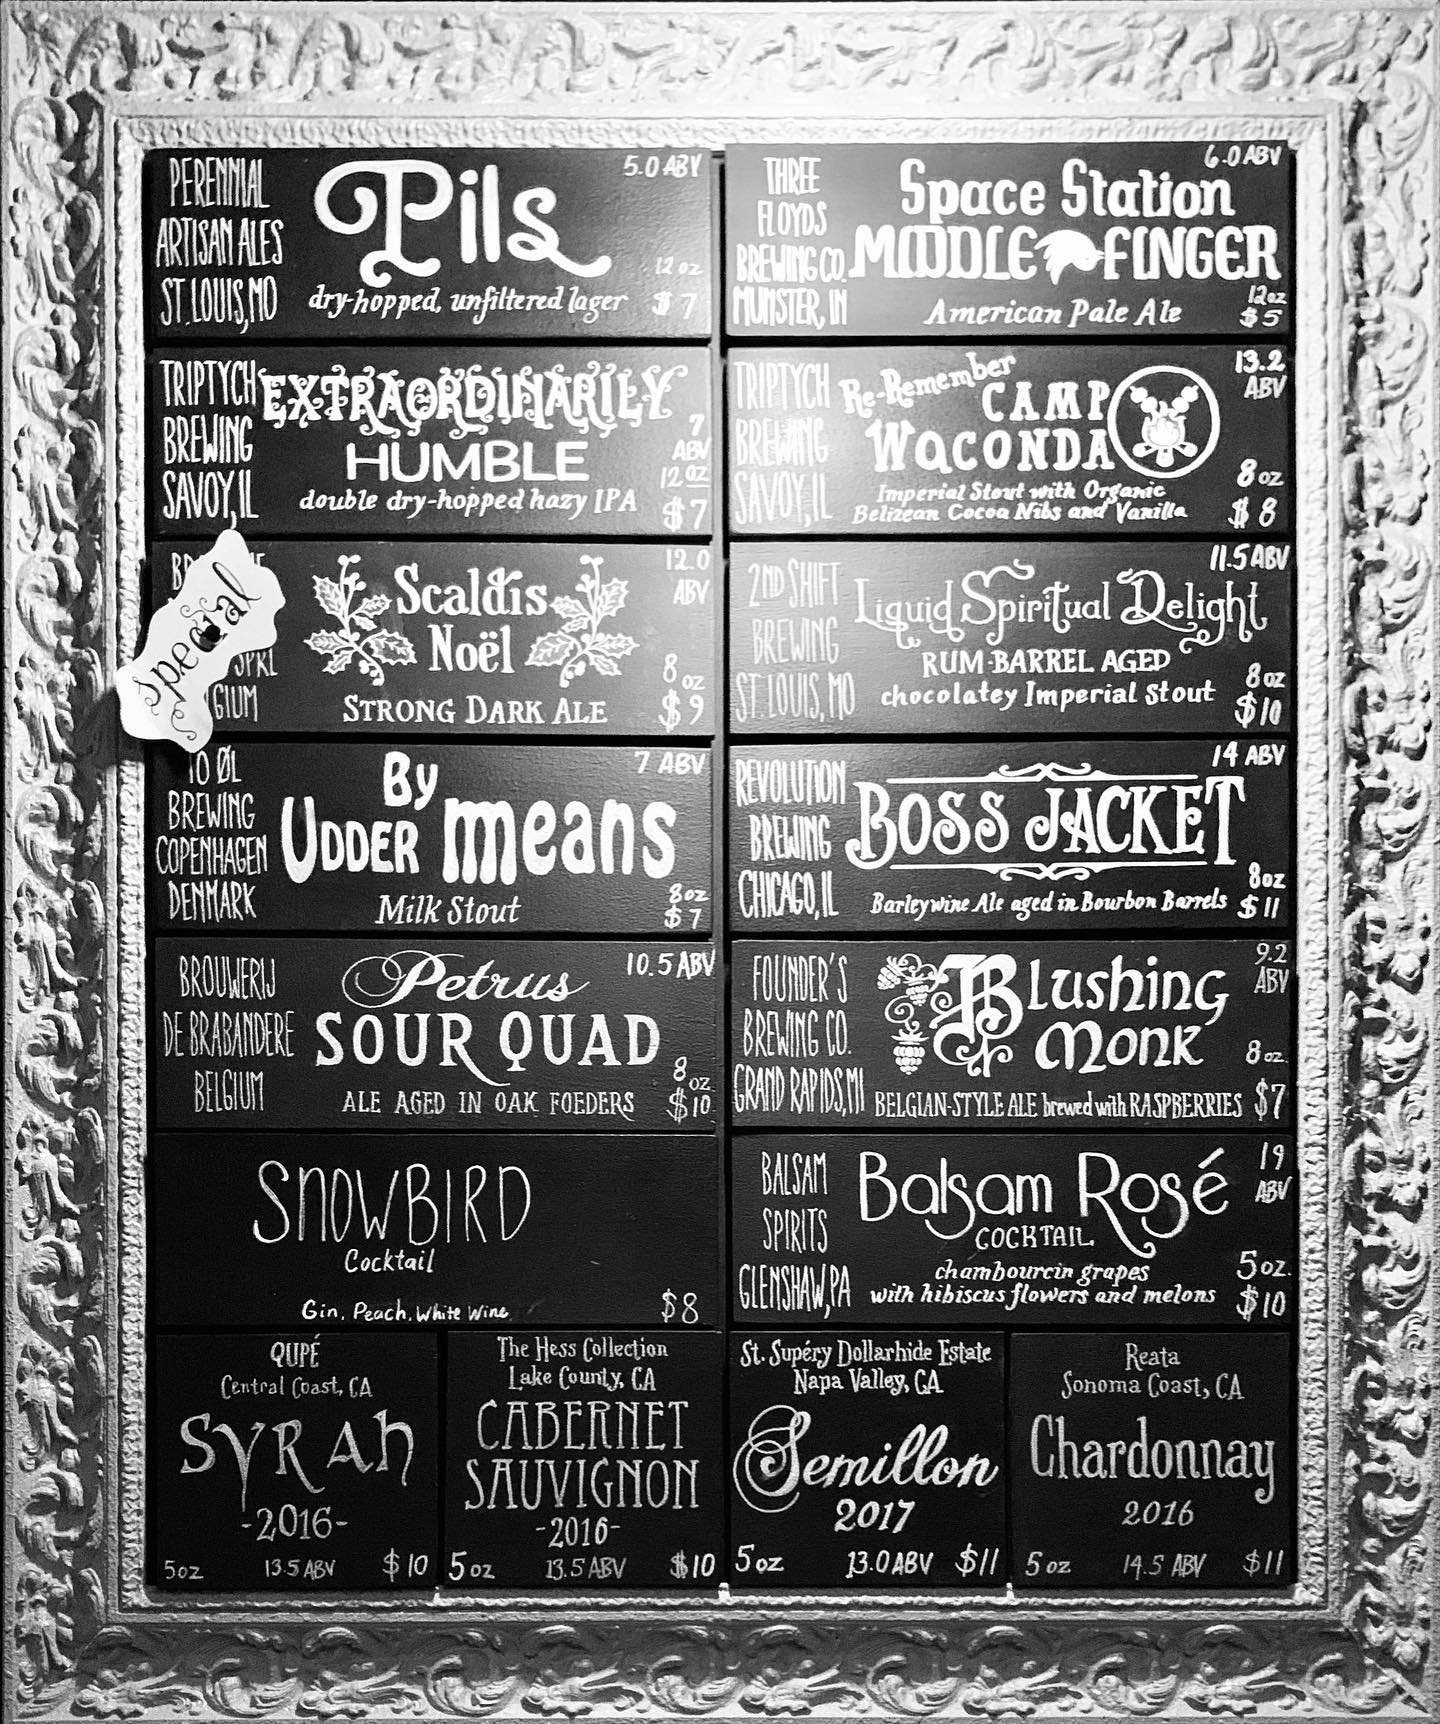 PERENNIAL
ARTISAN ALES
ST. LOUIS, MO
Pils
5.0 ABV
dry-hopped, unfiltered lager
12 oz
$7
THREE
FLOYDS
BREWING CO.
MUNSTER, IN
6.0 ABV
Space Station
MIDDLE FINGER
American Pale Ale
12oz
$5
TRIPTYCH
BREWING
SAVOY, IL
EXTRAORDINARILY
HUMBLE
double dry-hopped hazy IPA
7
ABV
12 oz
$7
TRIPTYCH
BREWING
SAVOY, IL
Re-Remember
CAMP
WACONDA
Imperial Stout with Organic
Belizean Cocoa Nibs and Vanilla
13.2
ABV
8oz
$8
Special
Scaldis
Noël
STRONG DARK ALE
12.0
ABV
8 oz
$9
2ND SHIFT
BREWING
ST. LOUIS, MO
11.5 ABV
Liquid Spiritual Delight
RUM-BARREL AGED
chocolatey Imperial Stout
8oz
$10
TO ØL
BREWING
COPENHAGEN
DENMARK
By
UDDER means
Milk Stout
7 ABV
8oz
$7
REVOLUTION
BREWING
CHICAGO, IL
14 ABV
BOSS JACKET
Barleywine Ale aged in Bourbon Barrels
8oz
$11
BROUWERIJ
DE BRABANDERE
BELGIUM
Petrus
SOUR QUAD
ALE AGED IN OAK FOEDERS
10.5 ABV
8 oz
$10
FOUNDER'S
BREWING CO.
GRAND RAPIDS, MI
Blushing
Monk
BELGIAN-STYLE ALE brewed with RASPBERRIES
9.2
ABV
8 oz.
$7
SNOWBIRD
Cocktail
Gin, Peach, White Wine
$8
BALSAM
SPIRITS
GLENSHAW, PA
Balsam Rosé
COCKTAIL
chambourcin grapes
with hibiscus flowers and melons
19
ABV
5oz.
$10
QUPÉ
Central Coast, CA
SYRAH
-2016-
5oz 13.5 ABV $10
The Hess Collection
Lake County, CA
CABERNET
SAUVIGNON
-2016-
5oz 13.5 ABV $10
St. Supéry Dollarhide Estate
Napa Valley, CA
Semillon
2017
5oz 13.0 ABV $11
Reata
Sonoma Coast, CA
Chardonnay
2016
5 oz 14.5 ABV $11